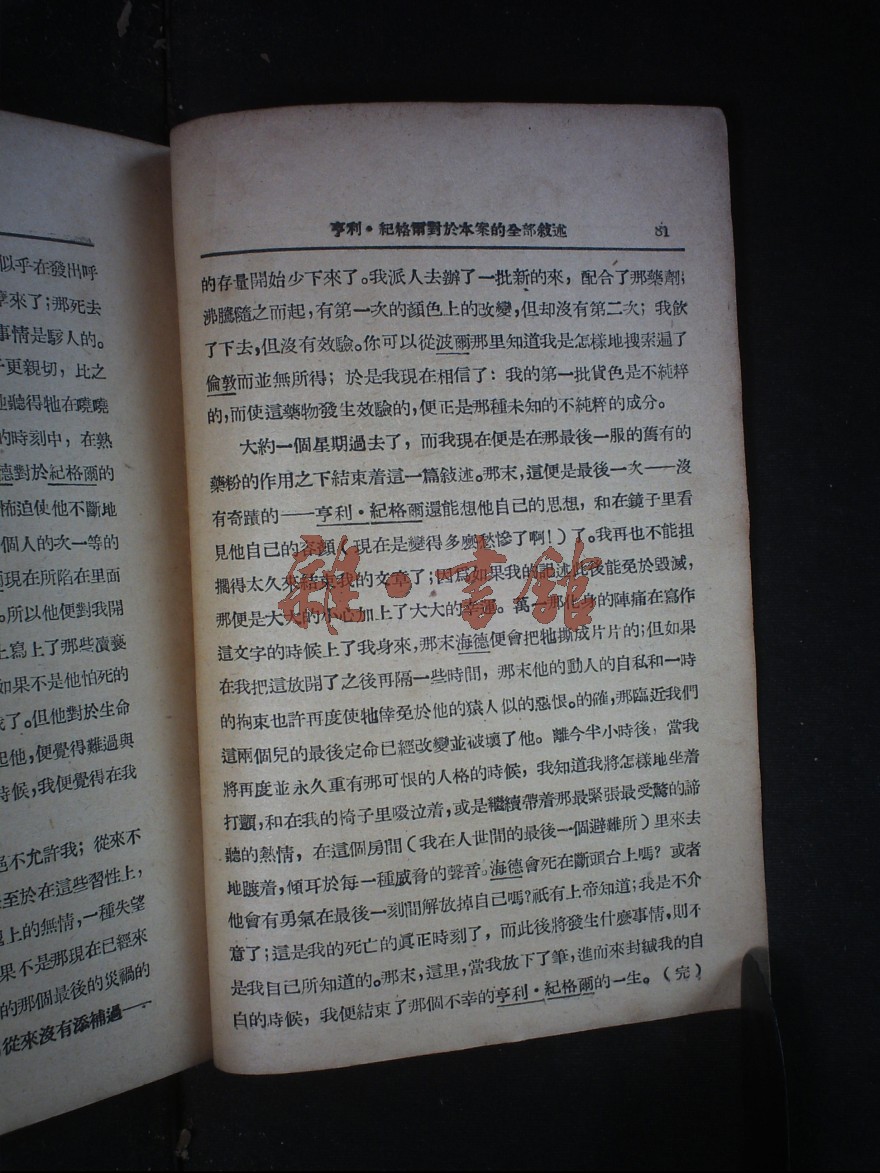 似乎在發出呼
來了；那死去
事情是駭人的。
更親切，比之
聽得牠在嘵嘵
的時刻中，在熟
德對於紀格爾的
怖迫使他不斷地
個人的次一等的
現在所陷在里面
。所以他便對我開
寫上了那些瀆褻
如果不是他怕死的
我了。但他對於生命
起他，便覺得難過與
時候，我便覺得在我
絕不允許我；從來不
至於在這些習性上，
上的無情，一種失望
果不是那現在已經來
的那個最後的災禍的
從來沒有添補過——
亨利·紀格爾對於本案的全部敍述 81
的存量開始少下來了。我派人去辦了一批新的來，配合了那藥劑；
沸騰隨之而起，有第一次的顏色上的改變，但却沒有第二次；我飲
了下去，但沒有效驗。你可以從波爾那里知道我是怎樣地搜索遍了
倫敦而並無所得；於是我現在相信了：我的第一批貨色是不純粹
的，而使這藥物發生效驗的，便正是那種未知的不純粹的成分。
大約一個星期過去了，而我現在便是在那最後一服的舊有的
藥粉的作用之下結束着這一篇敍述。那末，這便是最後一次——沒
有奇蹟的——亨利·紀格爾還能想他自己的思想，和在鏡子里看
見他自己的容顏（現在是變得多麽愁慘了啊！）了。我再也不能担
擱得太久來結束我的文章了；因爲如果我的記述此後能免於毀滅，
那便是大大的小心加上了大大的幸運。萬一那化身的陣痛在寫作
這文字的時候上了我身來，那末海德便會把牠撕成片片的；但如果
在我把這放開了之後再隔一些時間，那末他的動人的自私和一時
的拘束也許再度使牠倖免於他的猿人似的惡恨。的確，那臨近我們
這兩個兒的最後定命已經改變並破壞了他。離今半小時後，當我
將再度並永久重有那可恨的人格的時候，我知道我將怎樣地坐着
打顫，和在我的椅子里啜泣着，或是繼續帶着那最緊張最受驚的諦
聽的熱情，在這個房間（我在人世間的最後一個避難所）里來去
地踱着，傾耳於每一種威脅的聲音。海德會死在斷頭台上嗎？或者
他會有勇氣在最後一刻間解放掉自己嗎？祇有上帝知道；我是不介
意了；這是我的死亡的眞正時刻了，而此後將發生什麼事情，則不
是我自己所知道的。那末，這里，當我放下了筆，進而來封緘我的自
白的時候，我便結束了那個不幸的亨利·紀格爾的一生。（完）
雜·書館